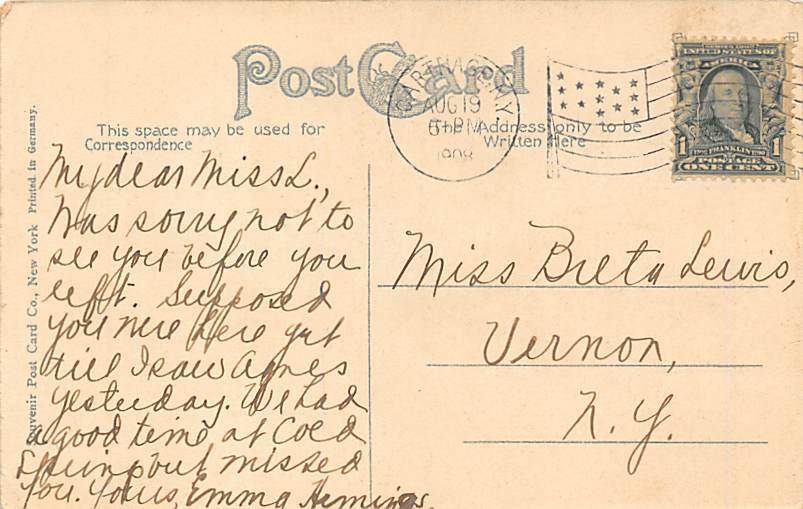 Post Card
CARTHAGE, N.Y.
AUG 19
6-PM
1908
UNITED STATES OF
AMERICA
1 FRANKLIN 1
POSTAGE
ONE CENT
This space may be used for
Correspondence
The Address only to be
Written Here
My dear Miss L.,
Was sorry not to
see you before you
left. Supposed
you were here yet
till I saw Agnes
yesterday. We had
a good time at Cold
Spring but missed
you. Yours, Emma Hemings.
Miss Breta Lewis,
Vernon,
N.Y.
Souvenir Post Card Co., New York Printed in Germany.